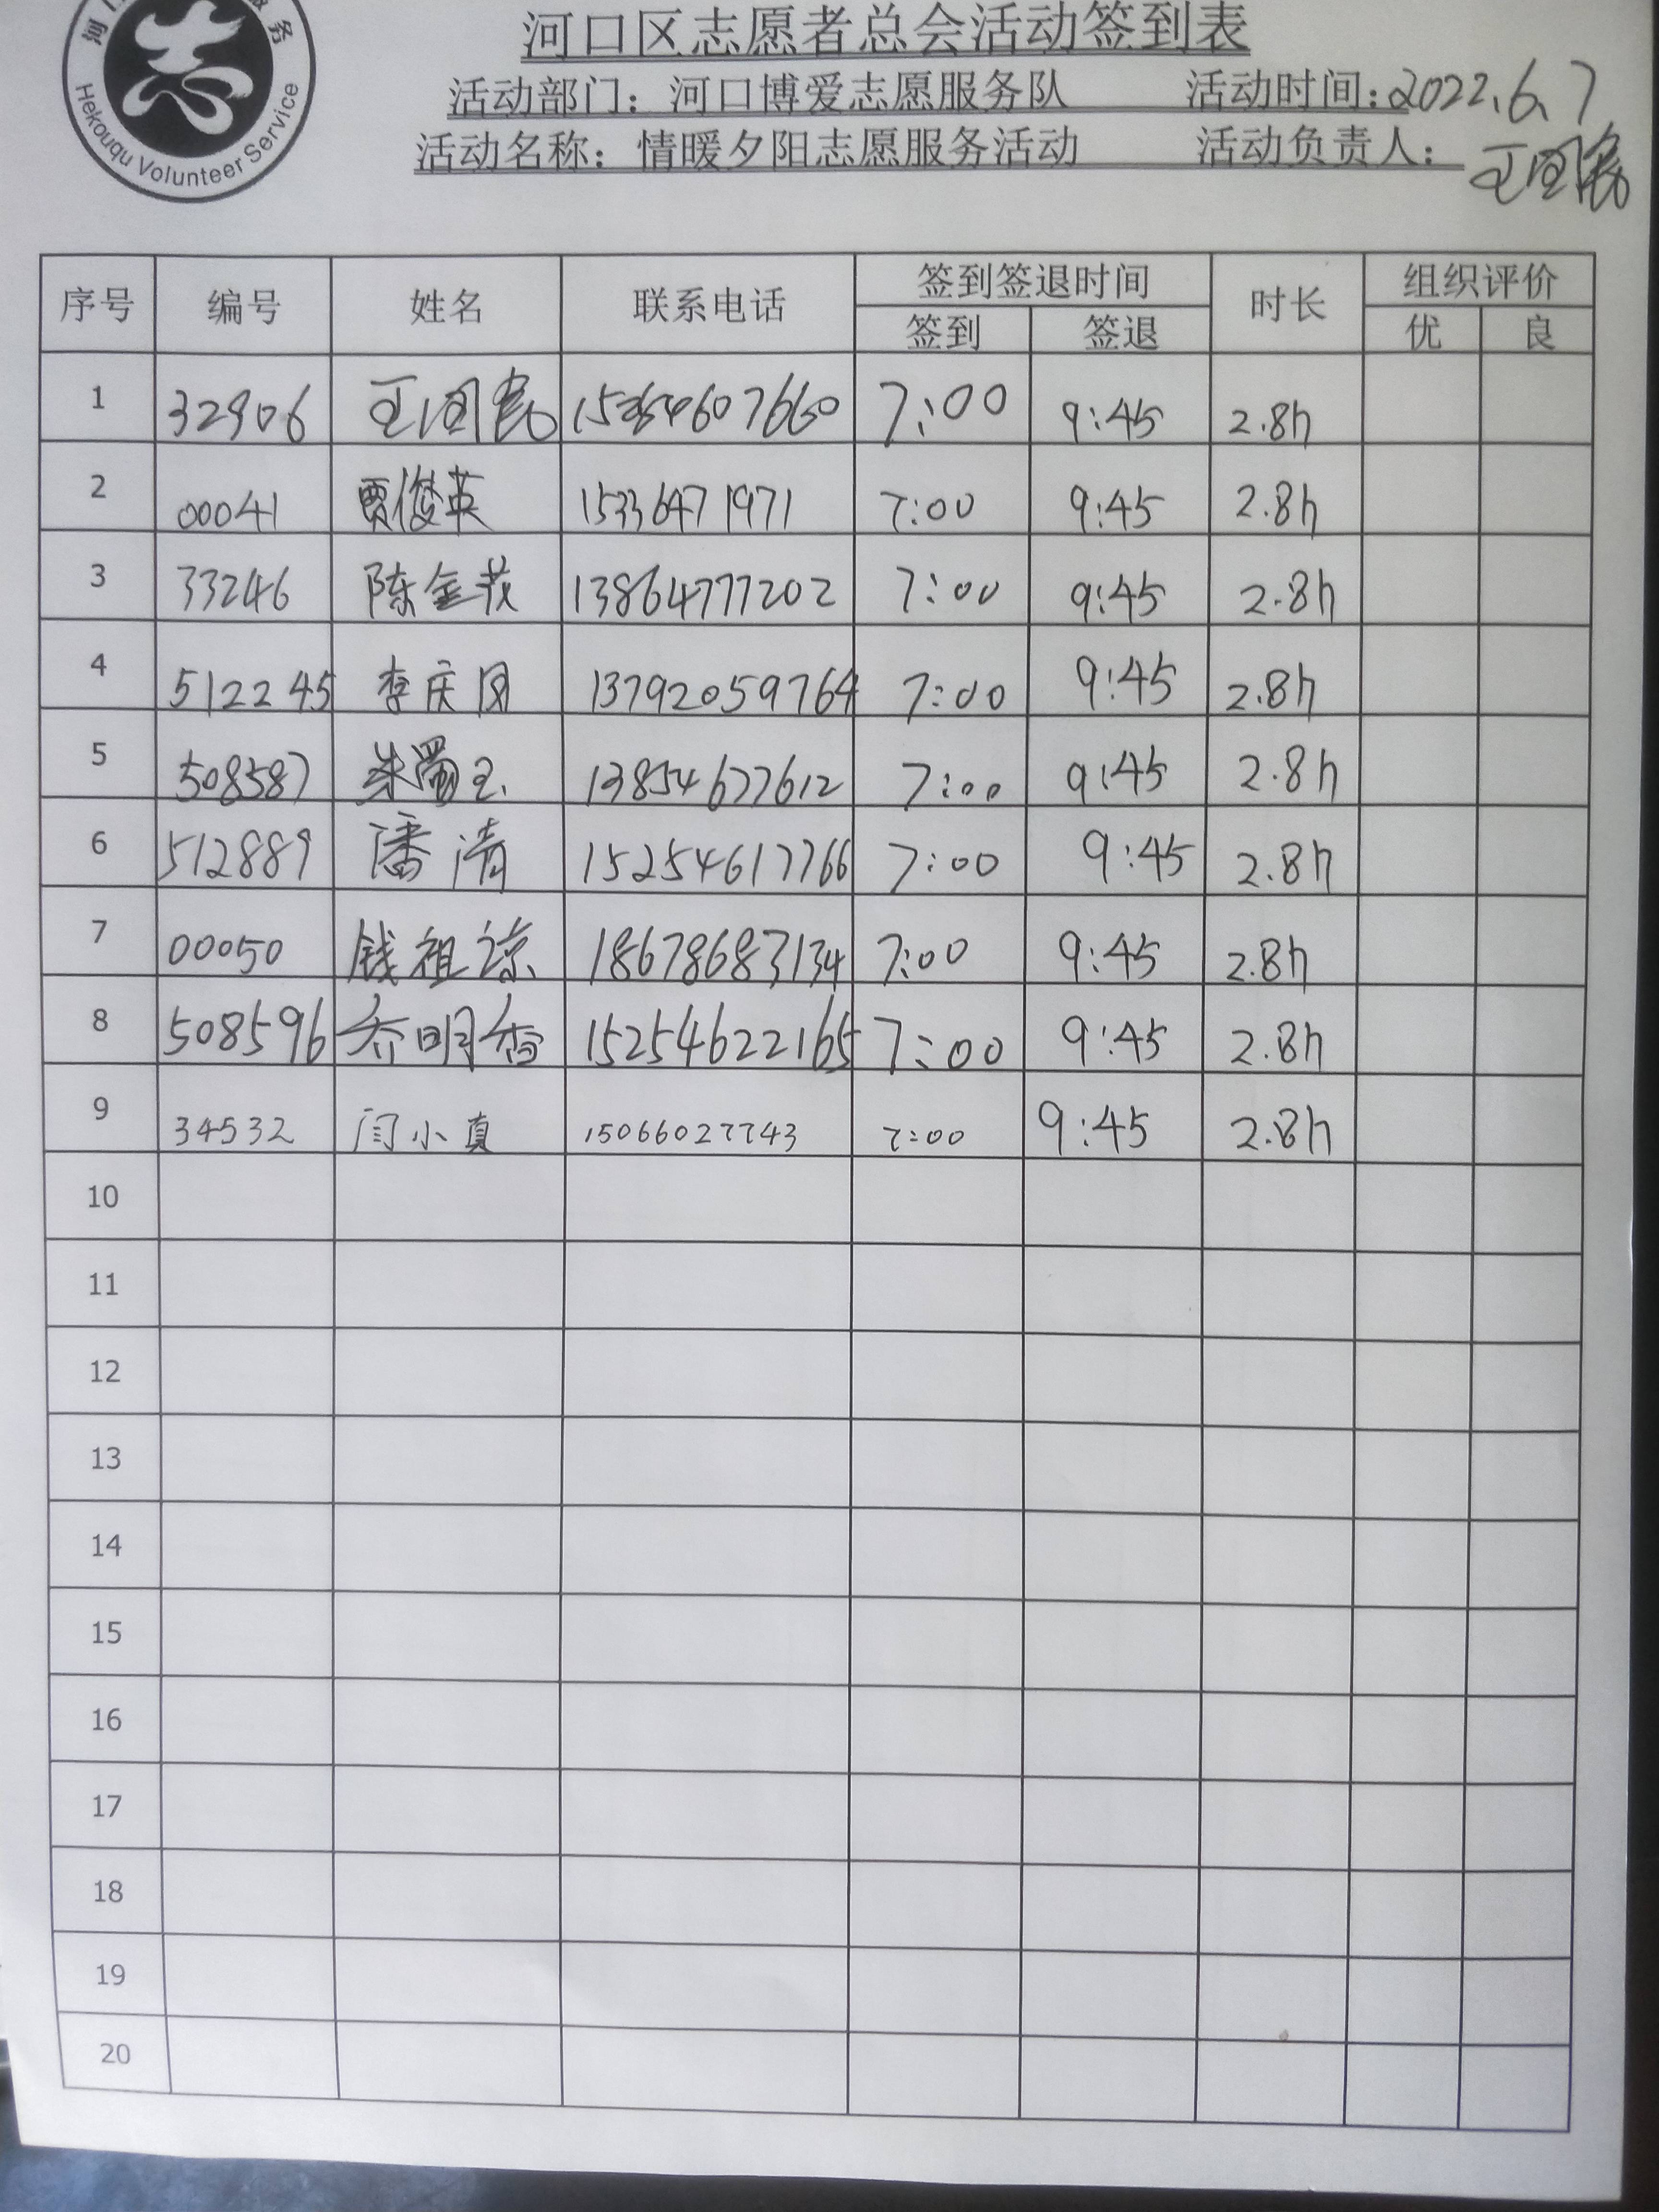 河口 服务
Hekouqu Volunteer Service
河口区志愿者总会活动签到表
活动部门：河口博爱志愿服务队 活动时间：2022.6.7
活动名称：情暖夕阳志愿服务活动 活动负责人：王国民
序号 编号 姓名 联系电话 签到签退时间 时长 组织评价
签到 签退 优 良
1 32906 王国民 7:00 9:45 2.8h
2 00041 贾俊英 15336471971 7:00 9:45 2.8h
3 33246 陈金茂 13864777202 7:00 9:45 2.8h
4 512245 李庆国 13792059764 7:00 9:45 2.8h
5 508587 朱 玉 13854677612 7:00 9:45 2.8h
6 512889 潘清 15254617766 7:00 9:45 2.8h
7 00050 钱祖谅 18678683134 7:00 9:45 2.8h
8 508596 乔明香 15254622165 7:00 9:45 2.8h
9 34532 闫小真 15066027743 7:00 9:45 2.8h
10
11
12
13
14
15
16
17
18
19
20